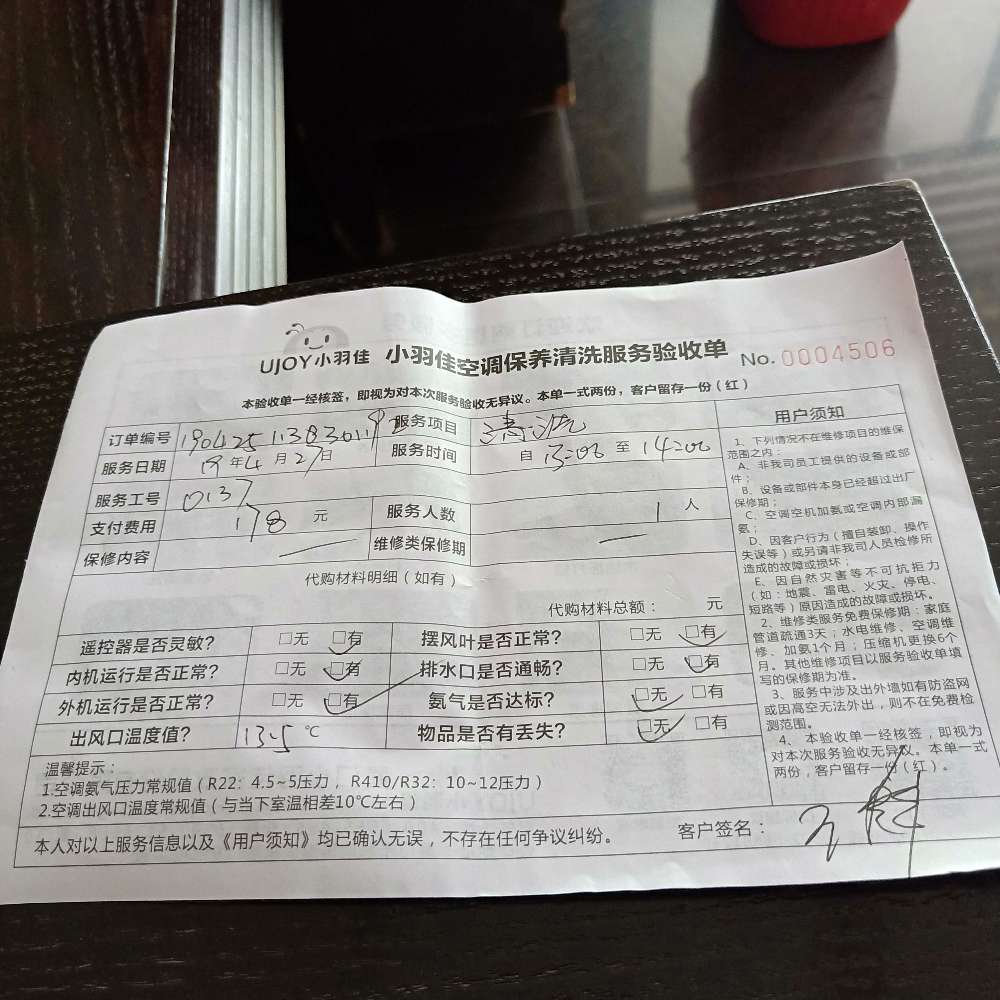 UJOY小羽佳 小羽佳空调保养清洗服务验收单 No.0004506
本验收单一经核签，即视为对本次服务验收无异议。本单一式两份，客户留存一份（红）
订单编号 服务项目 清洗
服务日期 19年4月27日 服务时间 自13:00至14:00
服务工号 0137
支付费用 178 元 服务人数 1 人
保修内容 — 维修类保修期 —
代购材料明细（如有）
代购材料总额： 元
遥控器是否灵敏？ □无 □有 摆风叶是否正常？ □无 □有
内机运行是否正常？ □无 □有 排水口是否通畅？ □无 □有
外机运行是否正常？ □无 □有 氨气是否达标？ □无 □有
出风口温度值？ 13.5 ℃ 物品是否有丢失？ □无 □有
温馨提示：
1.空调氨气压力常规值（R22：4.5~5压力，R410/R32：10~12压力）
2.空调出风口温度常规值（与当下室温相差10℃左右）
本人对以上服务信息以及《用户须知》均已确认无误，不存在任何争议纠纷。 客户签名：
用户须知
1、下列情况不在维修项目的维保
范围之内：
A、非我司员工提供的设备或部
件；
B、设备或部件本身已经超过出厂
保修期；
C、空调空机加氨或空调内部漏
氨；
D、因客户行为（擅自装卸、操作
失误等）或另请非我司人员检修所
造成的故障或损坏；
E、因自然灾害等不可抗拒力
（如：地震、雷电、火灾、停电、
短路等）原因造成的故障或损坏。
2、维修类服务免费保修期：家庭
管道疏通3天；水电维修、空调维
修、加氨1个月；压缩机更换6个
月。其他维修项目以服务验收单填
写的保修期为准。
3、服务中涉及出外墙如有防盗网
或因高空无法外出，则不在免费检
测范围。
4、本验收单一经核签，即视为
对本次服务验收无异议。本单一式
两份，客户留存一份（红）。